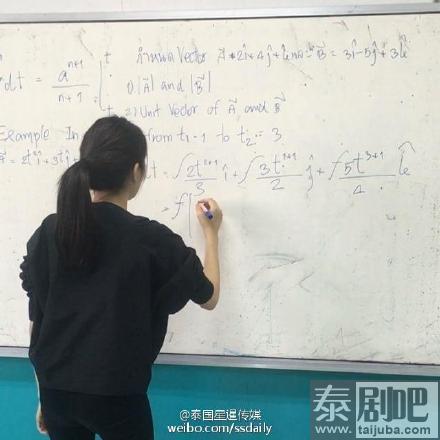 กำหนด Vector A = 2i + 4j + k และ B = 3î - 5ĵ + 3k̂
dt = a^(n+1) / n+1 | t
1) |A⃗| and |B⃗|
2) Unit Vector of A⃗ and B⃗
Example In from t₁ = 1 to t₂ = 3
= 2t²î + 3tĵ t = ∫ 2t²⁺¹/3 î + ∫ 3t¹⁺¹/2 ĵ + ∫ 5t³⁺¹/4 k̂
= f
@泰国星暹传媒
weibo.com/ssdaily
泰剧吧
www.taijuba.com